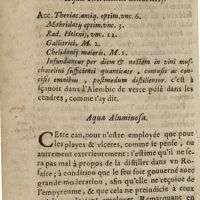 Acc. Theriac. antiq. optim. unc. 6.
Mithridatij optim. unc. 3.
Rad. Helenij, unc. 12.
Gallitrici, M. 2.
Chelydonij maioris, M. 1.
Infundantur per diem & noctem in vini mus-
chatelini sufficienti quantitate, contusis ac con-
cisis omnibus, postmodum distillentur. c'est à
sçauoir dans l'Alembic de verre posé dans les
cendres, comme i'ay dit.
Aqua Aluminosa.
Cette eau, pour n'estre employée que pour
les playes & vlceres, comme ie pense, ou
autrement exterieurement: i'estime qu'il ne se-
ra pas mal à propos de la distiller dans vn Ro-
saire; à condition que le feu soit gouuerné auec
grande moderation, afin qu'elle ne reçoiue de
l'empyreume, & que cela ne preiudicie à ceux
employer. Remarquant en